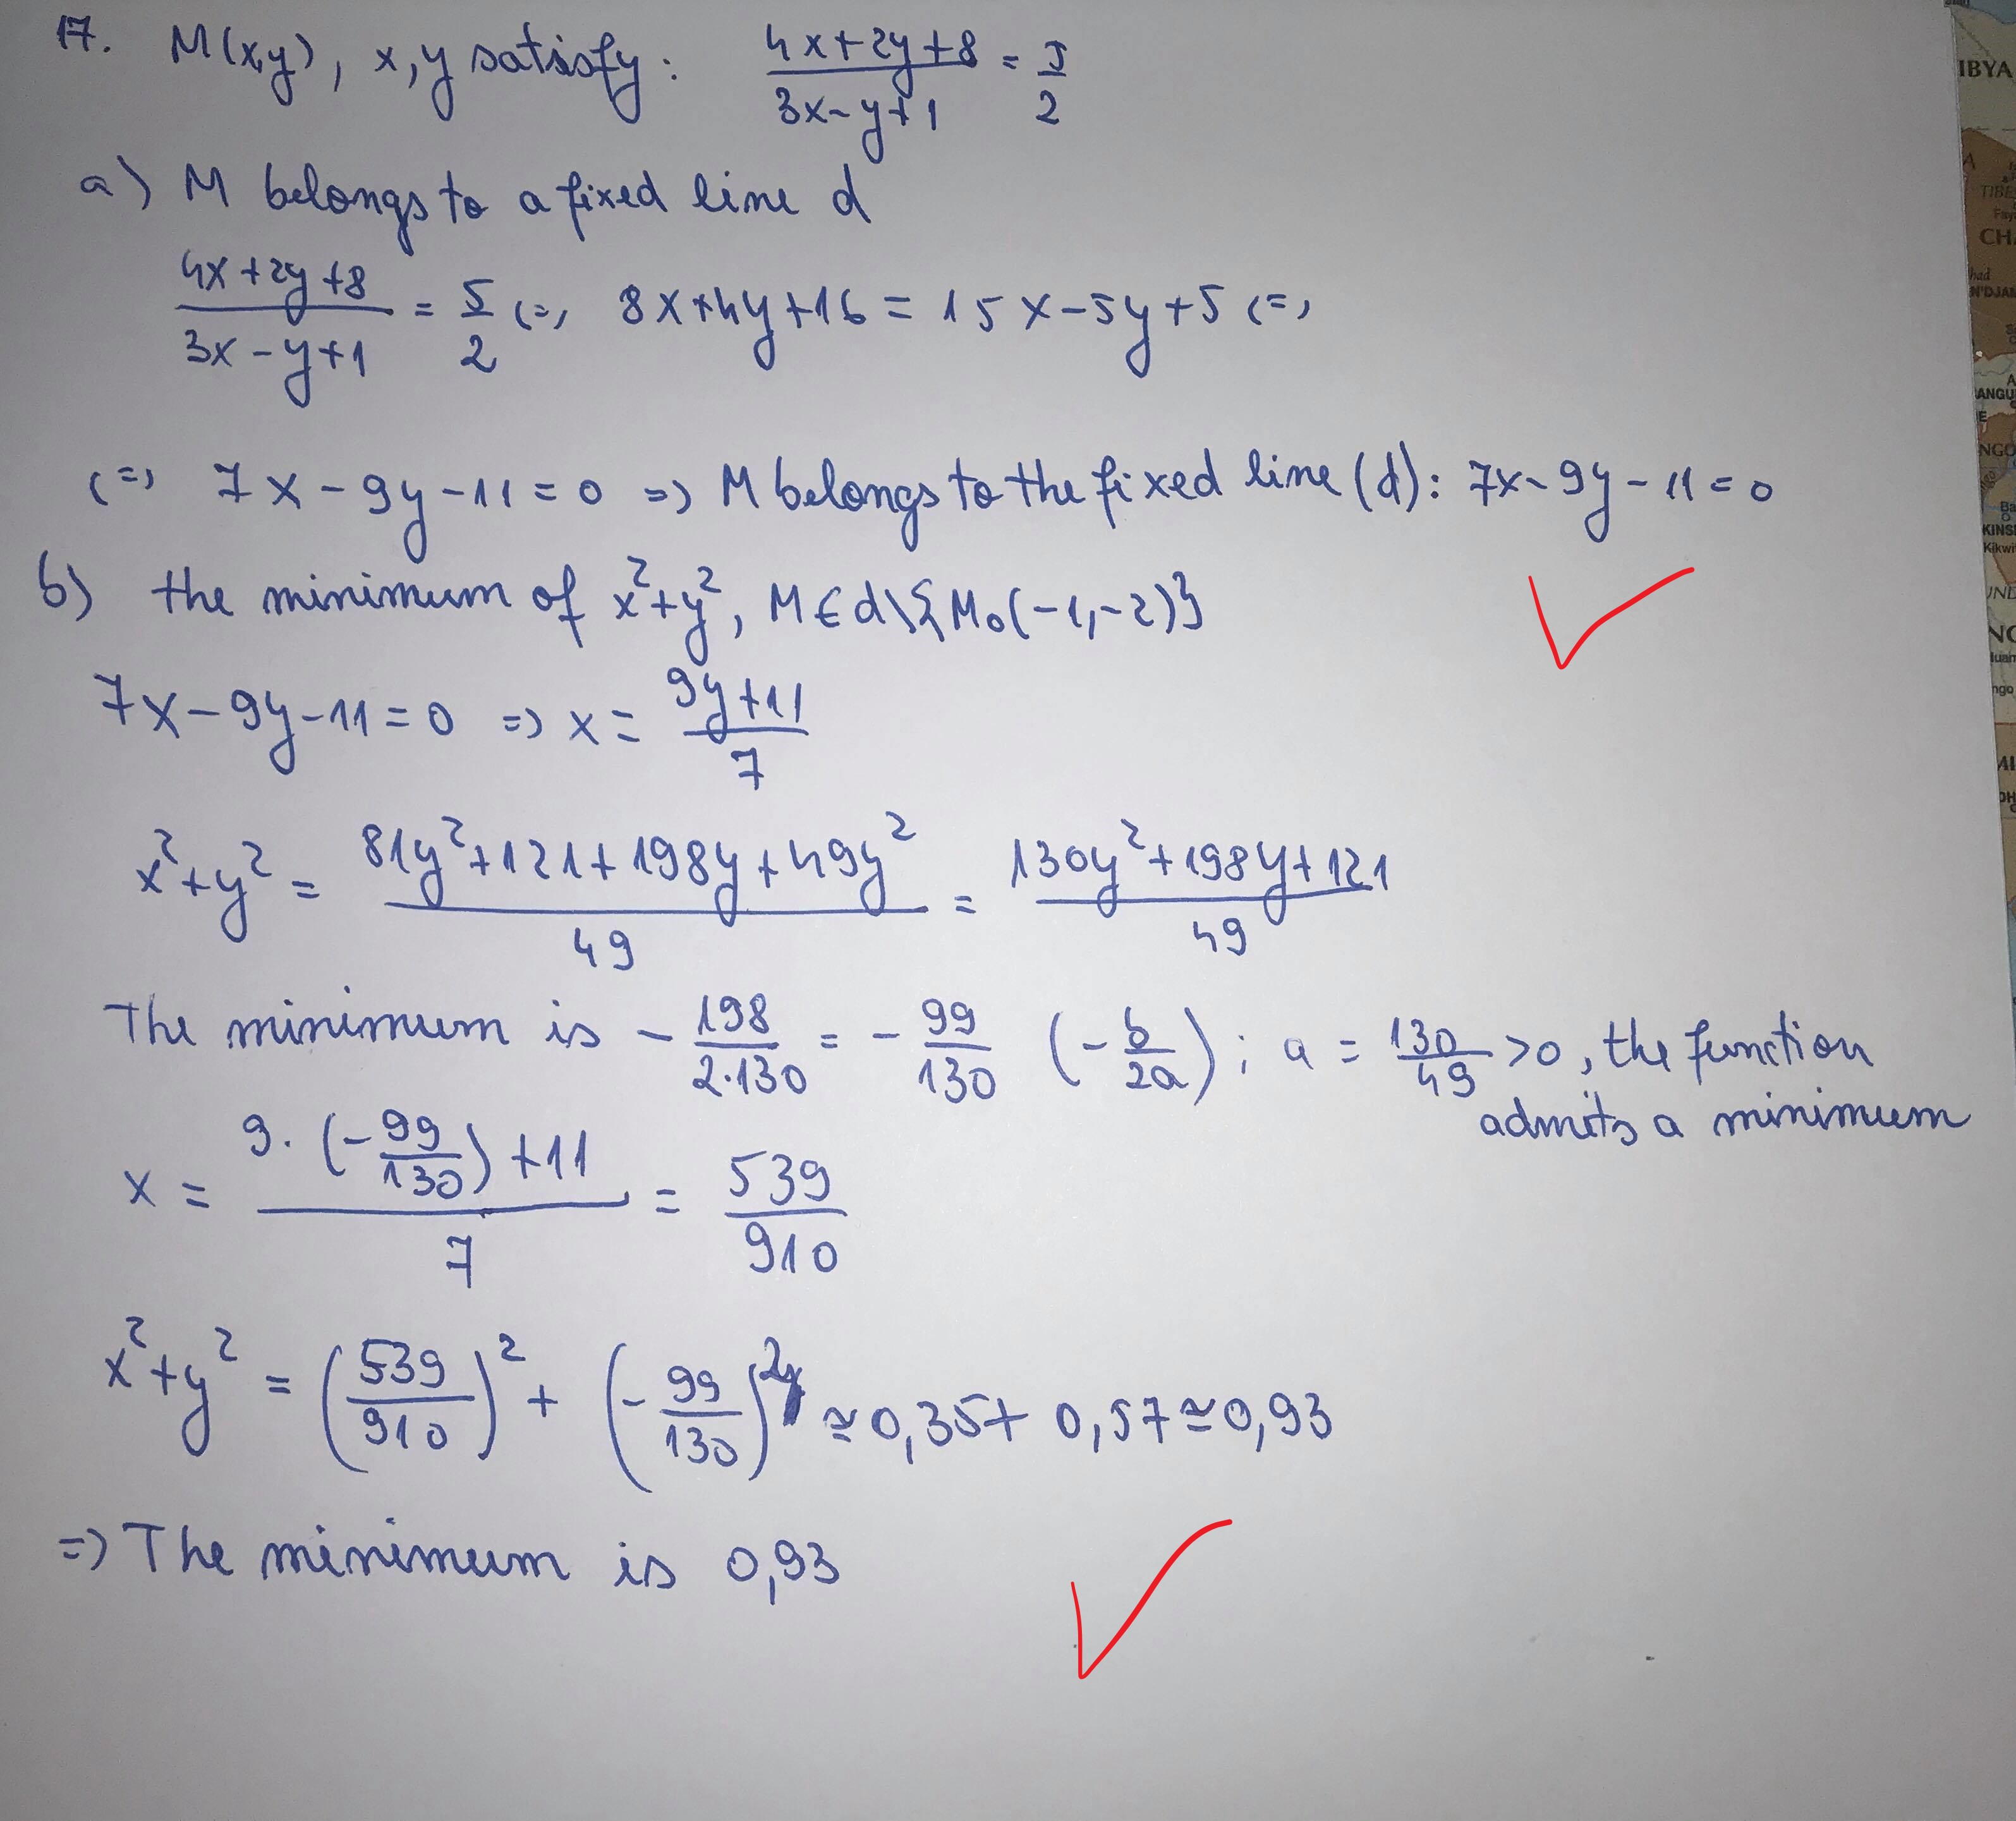 17. M(x,y), x,y satisfy: (4x+2y+8)/(3x-y+1) = 5/2
a) M belongs to a fixed line d
(4x+2y+8)/(3x-y+1) = 5/2 (=) 8x+4y+16 = 15x-5y+5 (=)
(=) 7x-9y-11=0 =) M belongs to the fixed line (d): 7x-9y-11=0
b) the minimum of x²+y², M∈d\{M₀(-1,-2)}
7x-9y-11=0 =) x = (9y+11)/7
x²+y² = (81y²+121+198y+49y²)/49 = (130y²+198y+121)/49
The minimum is -198/(2·130) = -99/130 (-b/2a); a = 130/49 >0, the function
admits a minimum
x = (9·(-99/130)+11)/7 = 539/910
x²+y² = (539/910)² + (-99/130)² ≃ 0,35+0,57≃0,93
=) The minimum is 0,93
IBYA
TIBE
CH
N'DJAM
ANGU
NGO
KINS
Kikwi